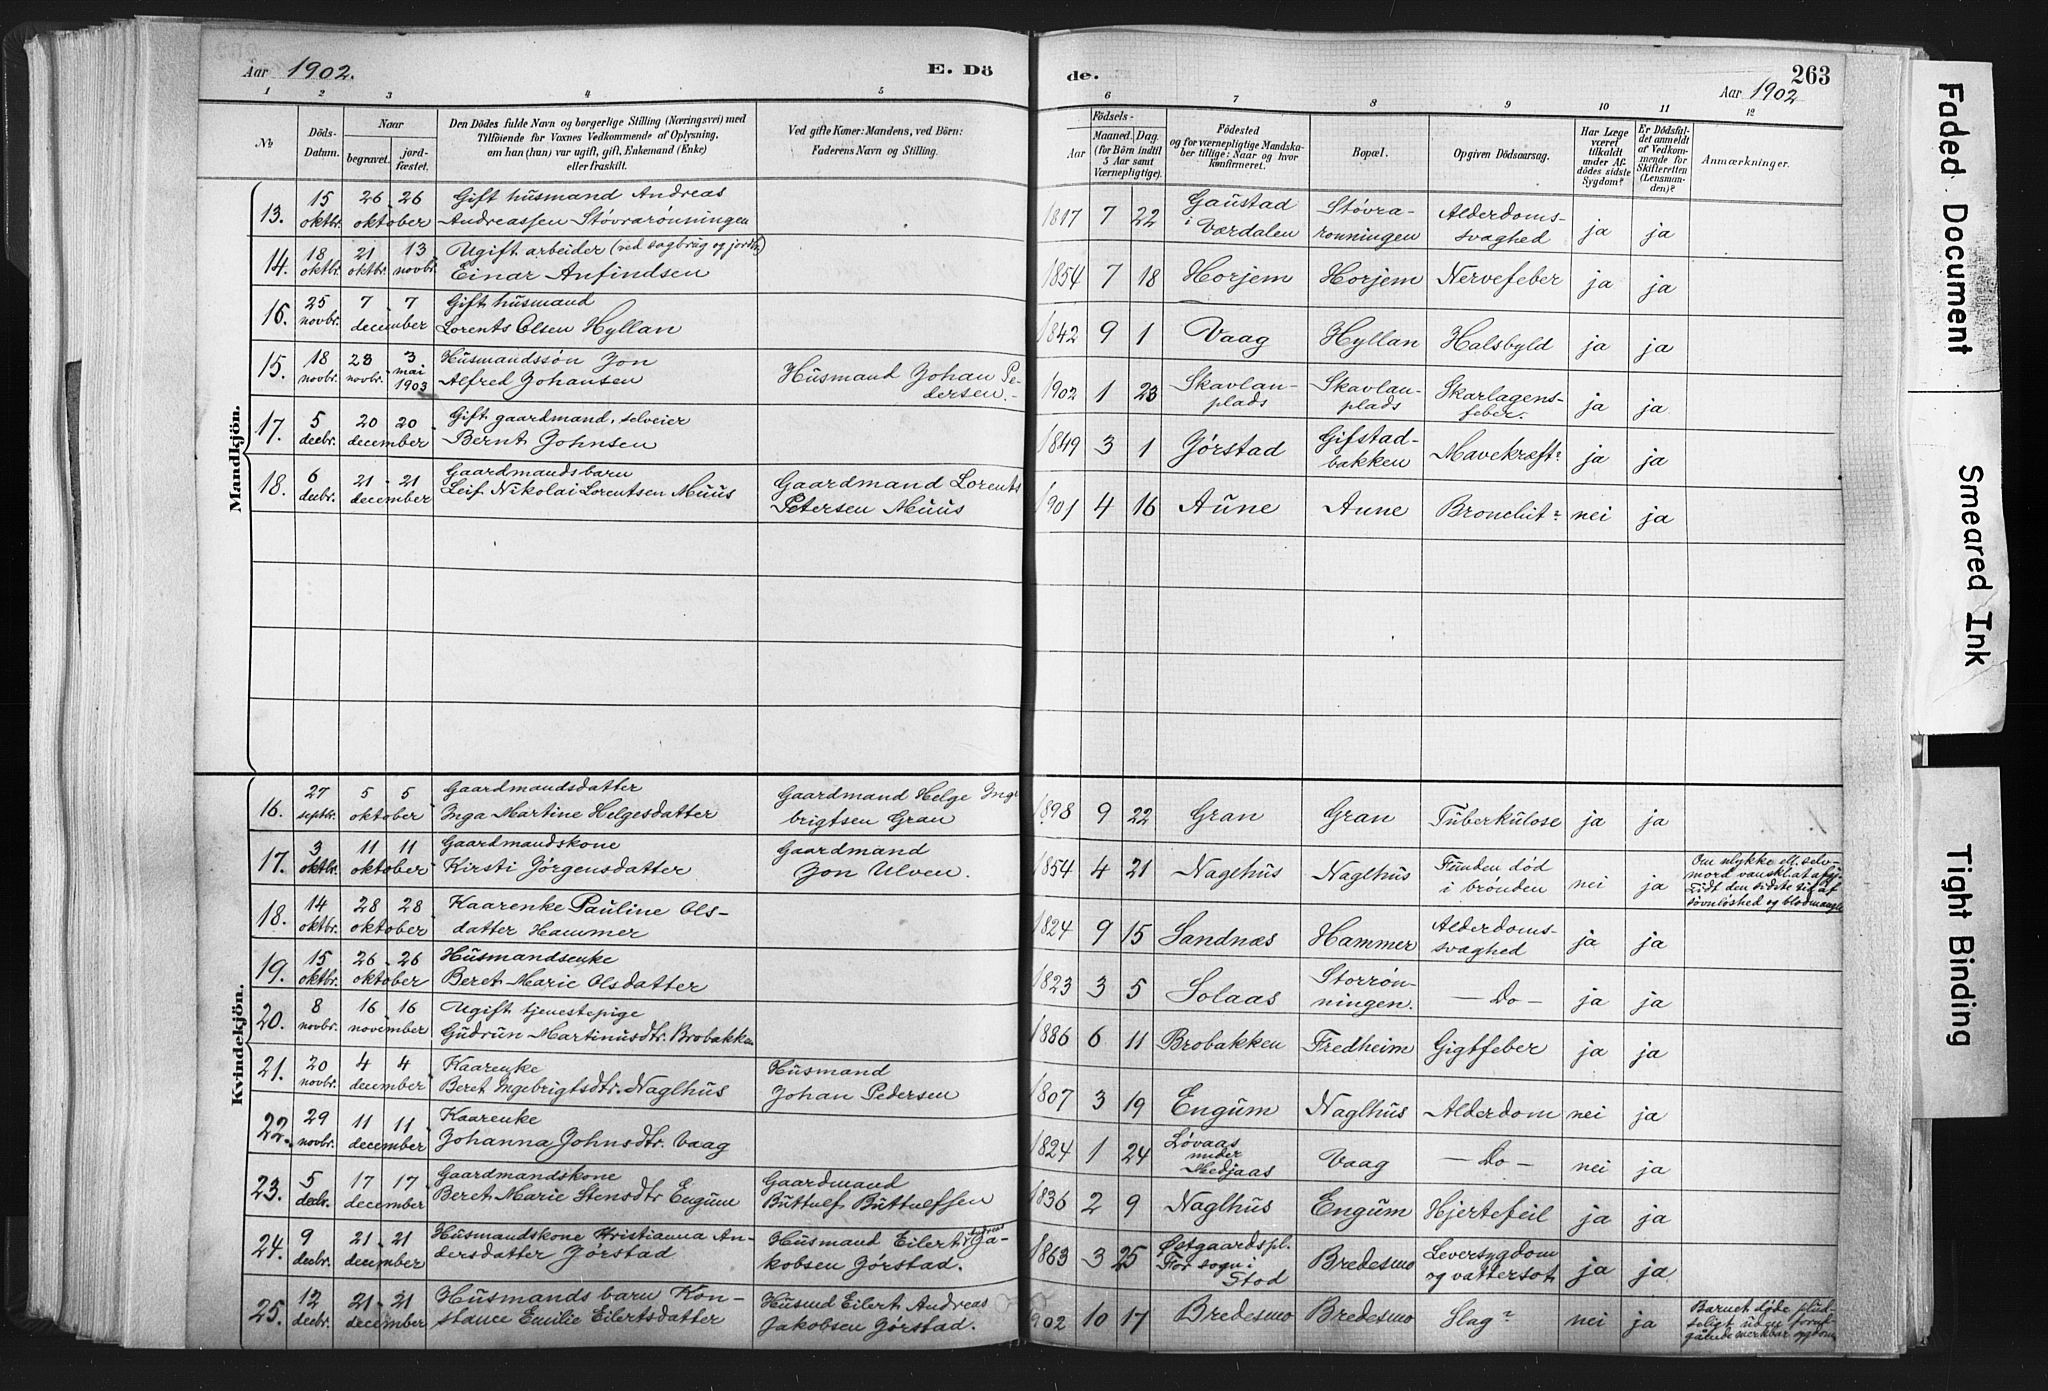 Aar 1902. E. Dö
de. 263
Aar 1902
1 2 3 4 5
6 7 8 9 10 11 12
№
Döds-
Datum.
Naar
begravet.
jord-
fæstet.
Den Dödes fulde Navn og borgerlige Stilling (Næringsvei) med
Tilföiende for Voxnes Vedkommende af Oplysning,
om han (hun) var ugift, gift, Enkemand (Enke)
eller fraskilt.
Ved gifte Koner: Mandens, ved Börn:
Faderens Navn og Stilling.
Födsels-
Aar
Maaned. Dag.
(for Börn indtil
5 Aar samt
Værnepligtige).
Födested
og for værnepligtige Mandska-
ber tillige: Naar og hvor
konfirmeret.
Bopæl.
Opgiven Dödsaarsag.
Har Læge
været
tilkaldt
under Af-
dödes sidste
Sygdom?
Er Dödsfal-
det anmeldt
af Vedkom-
mende for
Skifteretten
(Lensman-
den)?
Anmærkninger.
Mandkjön.
13. 15 oktbr. 26 - 26 oktober Gift husmand Andreas
Andreassen Støvrarønningen
1817 7 22 Gaustad i Værdalen Støvra-
rønningen Alderdoms-
svaghed ja ja
14. 18 oktbr. 21 oktbr. 13 novbr. Ugift arbeider (ved sagbrug og jordbr.)
Einar Anfindsen
1854 7 18 Horjem Horjem Nervefeber ja ja
16. 25 novbr. 7 - 7 december Gift husmand
Lorents Olsen Hyllan
1842 9 1 Vaag Hyllan Halsbyld ja ja
15. 18 novbr. 23 novbr. 3 mai 1903 Husmandssøn Jon
Alfred Johansen
Husmand Johan Pe-
dersen.
1902 1 23 Skavlan-
plads Skavlan-
plads Skarlagens-
feber. ja ja
17. 5 decbr. 20 - 20 december Gift gaardmand, selveier
Bernt Johnsen
1849 3 1 Jørstad Gifstad-
bakken Mavekræft? ja ja
18. 6 decbr. 21 - 21 december Gaardmandsbarn
Leif Nikolai Lorentsen Muus
Gaardmand Lorents
Petersen Muus
1901 4 16 Aune Aune Bronchit? nei ja
Kvindekjön.
16. 27 septbr. 5 - 5 oktober Gaardmandsdatter
Inga Martine Helgesdatter
Gaardmand Helge Inge
brigtsen Gran
1898 9 22 Gran Gran Tuberkulose ja ja
17. 3 oktbr. 11 - 11 oktober Gaardmandskone
Kirsti Jørgensdatter
Gaardmand
Jon Ulven.
1854 4 21 Naglhus Naglhus Funden død
i brønden nei ja
Om ulykke ell. selv-
mord vanskl. at afgj.
Lidt den sidste tid af
søvnløshed og blodmangel
18. 14 oktbr. 28 - 28 oktober Kaarenke Pauline Ols-
datter Hammer
1824 9 15 Sandnæs Hammer Alderdoms-
svaghed ja ja
19. 15 oktbr. 26 - 26 oktober Husmandsenke
Beret Marie Olsdatter
1823 3 5 Solaas Storrøn-
ningen. — Do — ja ja
20. 8 novbr. 16 - 16 november Ugift tjenestepige
Gudrun Martinusdtr. Brobakken
1886 6 11 Brobakken Fredheim Gigtfeber ja ja
21. 20 novbr. 4 - 4 december Kaarenke
Beret Ingebrigtsdtr. Naglhus
Husmand
Johan Pedersen
1807 3 19 Engum Naglhus Alderdom nei ja
22. 29 novbr. 11 - 11 december Kaarenke
Johanna Johnsdtr. Vaag
1824 1 24 Løvaas
under
Medjaas Vaag — Do — nei ja
23. 5 decbr. 17 - 17 december Gaardmandskone
Beret Marie Stensdtr Engum
Gaardmand
Buttulf Buttulfsen
1836 2 9 Naglhus Engum Hjertefeil ja ja
24. 9 decbr. 21 - 21 december Husmandskone Kristianna An-
dersdatter Jørstad
Husmand Eilert Andreas Ja-
kobsen Jørstad.
1863 3 25 Østgaardspl.
For sogn i
Stod Bredesmo Leversygdom
og vattersot ja ja
25. 12 decbr. 21 - 21 december Husmandsbarn Kon-
stance Emilie Eilertsdatter
Husmd Eilert Andreas
Jakobsen Jørstad.
1902 10 17 Bredesmo Bredesmo Slag? nei ja
Barnet døde plud-
seligt uden forud-
gående merkbar sygdom
Faded Document
Smeared Ink
Tight Binding